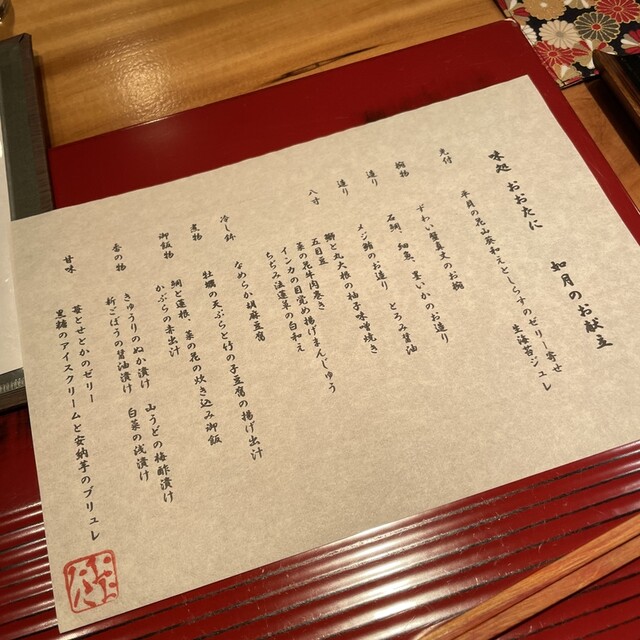 味処 おおたに 如月のお献立
先付
平貝の花山葵和えとしらすのゼリー寄せ
生海苔ジュレ
椀物
ずわい蟹真丈のお椀
造り
石鯛、細魚、墨いかのお造り とろみ醤油
造り
メジ鮪のお造り
八寸
鰤と丸大根の柚子味噌焼き
五目豆
菜の花牛肉巻き
インカの目覚め揚げまんじゅう
ちぢみ法蓮草の白和え
冷し鉢
なめらか胡麻豆腐
煮物
牡蠣の天ぷらと竹の子豆腐の揚げ出汁
御飯物
鯛と蓮根、菜の花の炊き込み御飯
かぶらの赤出汁
香の物
きゅうりのぬか漬け 山うどの梅酢漬け
新ごぼうの醤油漬け 白菜の浅漬け
甘味
苺とせとかのゼリー
黒糖のアイスクリームと安納芋のブリュレ